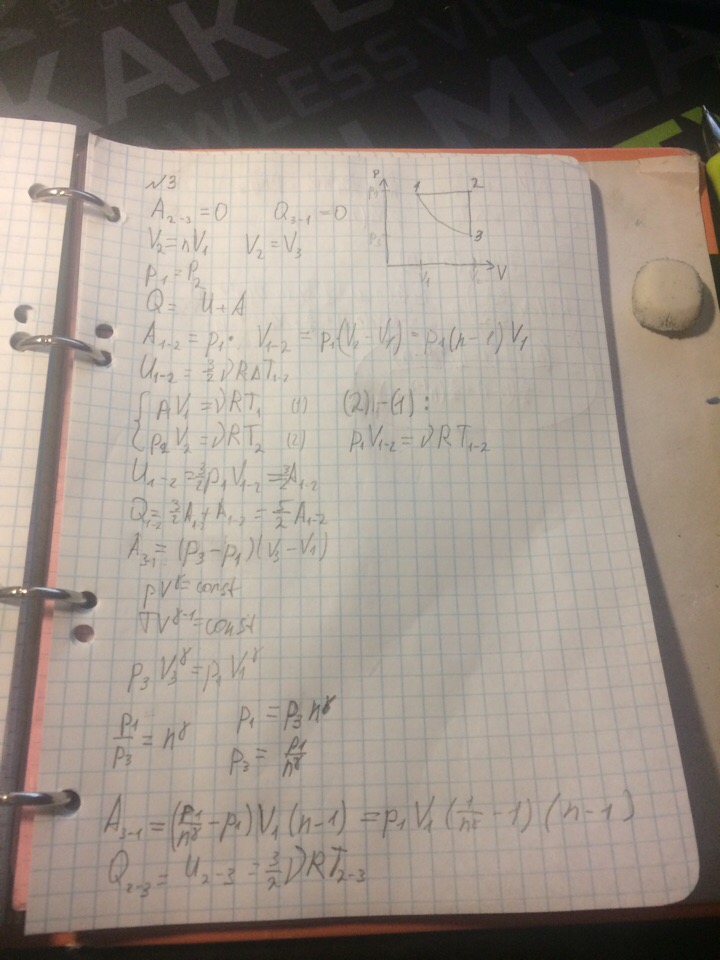 KAK
MEA
№3
P
P₁
1
2
A₂₋₃ = 0 Q₃₋₁ = 0
V₂ = nV₁ V₂ = V₃
P₃
3
p₁ = P₂
V₁
V
Q = U + A
A₁₋₂ = p₁ · V₁₋₂ = p₁(V₂ - V₁) = p₁(n-1)V₁
U₁₋₂ = 3/2 νRΔT₁₋₂
{ p₁V₁ = νRT₁ (1) (2) - (1) :
p₂V₂ = νRT₂ (2) p₁V₁₋₂ = νRT₁₋₂
U₁₋₂ = 3/2 p₁V₁₋₂ = 3/2 A₁₋₂
Q₁₋₂ = 3/2 A₁₋₂ + A₁₋₂ = 5/2 A₁₋₂
A₃₋₁ = (p₃ - p₁)(V₃ - V₁)
pV^γ = const
TV^γ⁻¹ = const
p₃V₃^γ = p₁V₁^γ
p₁/p₃ = n^γ p₁ = p₃n^γ
p₃ = p₁/n^γ
A₃₋₁ = (p₁/n^γ - p₁)V₁(n-1) = p₁V₁(1/n^γ - 1)(n-1)
Q₂₋₃ = U₂₋₃ = 3/2 νRT₂₋₃